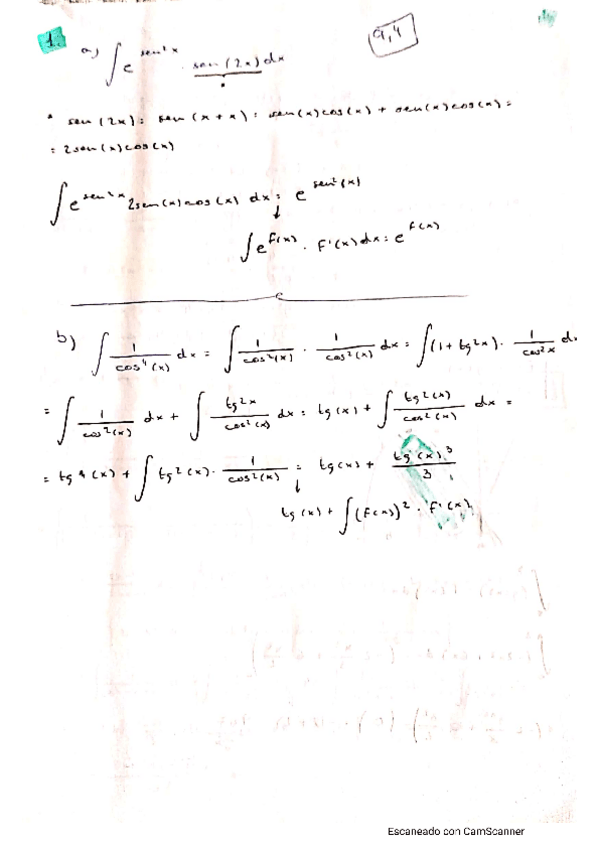 1. a) ∫ e^sen²x · sen(2x) dx
9,4
* sen(2x) = sen(x+x) = sen(x)cos(x) + sen(x)cos(x) =
= 2sen(x)cos(x)
∫ e^sen²x 2sen(x)cos(x) dx = e^sen²(x)
↓
∫ e^f(x) · f'(x) dx = e^f(x)
b) ∫ 1/cos⁴(x) dx = ∫ 1/cos²(x) · 1/cos²(x) dx = ∫ (1+tg²x) · 1/cos²x dx
= ∫ 1/cos²(x) dx + ∫ tg²x/cos²(x) dx = tg(x) + ∫ tg²(x)/cos²(x) dx =
= tg(x) + ∫ tg²(x) · 1/cos²(x) = tg(x) + tg(x)³/3
↓
tg(x) + ∫ (f(x))² · f'(x)
Escaneado con CamScanner